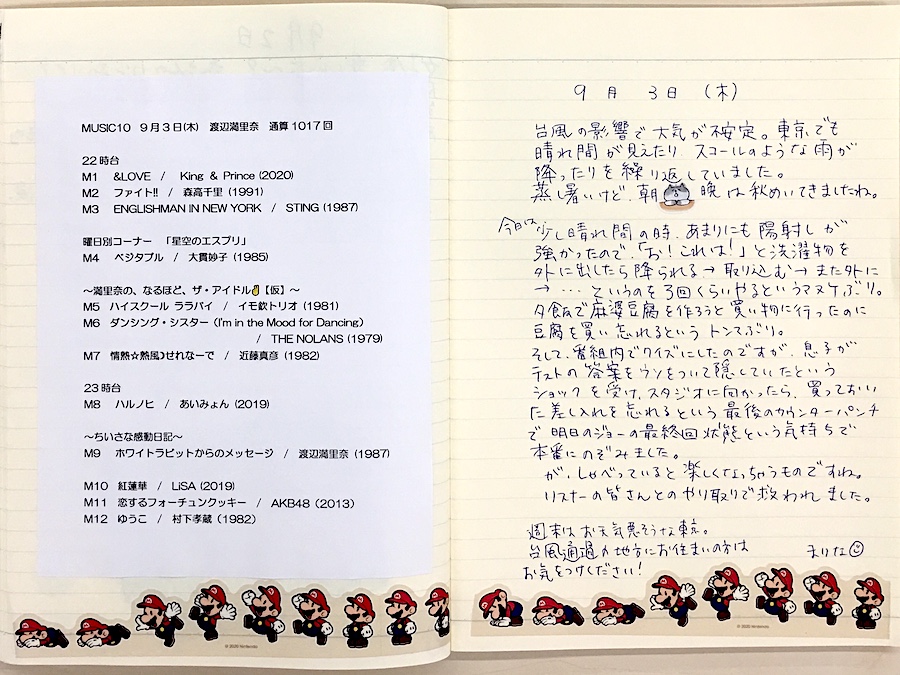 MUSIC10　9月3日(木)　渡辺満里奈　通算1017回
22時台
M1　&LOVE　/　King & Prince (2020)
M2　ファイト!!　/　森高千里 (1991)
M3　ENGLISHMAN IN NEW YORK　/　STING (1987)
曜日別コーナー　「星空のエスプリ」
M4　ベジタブル　/　大貫妙子 (1985)
～満里奈の、なるほど、ザ・アイドル✌【仮】～
M5　ハイスクール ララバイ　/　イモ欽トリオ (1981)
M6　ダンシング・シスター (I'm in the Mood for Dancing)
/　THE NOLANS (1979)
M7　情熱☆熱風☽せれなーで　/　近藤真彦 (1982)
23時台
M8　ハルノヒ　/　あいみょん (2019)
～ちいさな感動日記～
M9　ホワイトラビットからのメッセージ　/　渡辺満里奈 (1987)
M10　紅蓮華　/　LiSA (2019)
M11　恋するフォーチュンクッキー　/　AKB48（2013）
M12　ゆうこ　/　村下孝蔵（1982）
© 2020 Nintendo
9月 3日 (木)
台風の影響で大気が不安定。東京でも
晴れ間が見えたり、スコールのような雨が
降ったりを繰り返していました。
蒸し暑いけど、朝晩は秋めいてきましたね。
今日は、少し晴れ間の時、あまりにも陽射しが
強かったので、「お！これは！」と洗濯物を
外に出したら降られる→取り込む→また外に
→…というのを3回くらいやるというマヌケぶり。
夕飯で麻婆豆腐を作ろうと買い物に行ったのに
豆腐を買い忘れるというトンマぶり。
そして、番組内でクイズにしたのですが、息子が
テストの答案をウソをついて隠していたという
ショックを受け、スタジオに向かったら、買っておい
た差し入れを忘れるという最後のカウンターパンチ
で明日のジョーの最終回状態という気持ちで
本番にのぞみました。
が、しゃべっていると楽しくなっちゃうものですね。
リスナーの皆さんとのやり取りで救われました。
週末はお天気悪そうな東京。
台風通過の地方にお住まいの方は
お気をつけください！
まりな
© 2020 Nintendo